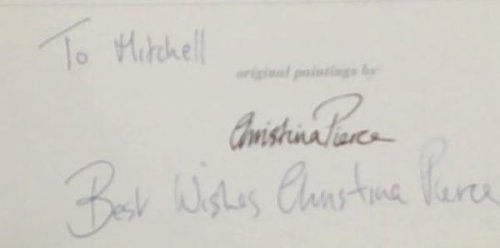 To Mitchell
original paintings by
Christina Pierce
Best Wishes Christina Pierce